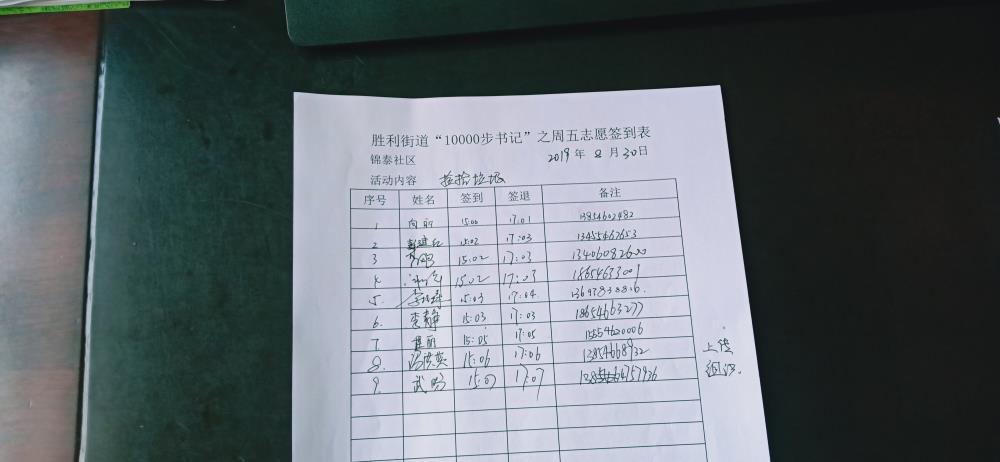 胜利街道“10000步书记”之周五志愿签到表
锦泰社区 2019 年 8 月 30 日
活动内容 捡拾垃圾
序号 姓名 签到 签退 备注
1 向前 15:00 17:01 13854602482
2 17:03 13455462653
3 15:02 17:03 13406082600
4 15:02 17:03 18654673001
5. 15:03 17:04. 13697838816.
6. 李静 15:03 17:03 18654663277
7 15:05 17:05 15854620006
8. 15:06 17:06 13854668932
9. 武鸣 15:07 17:07
上传